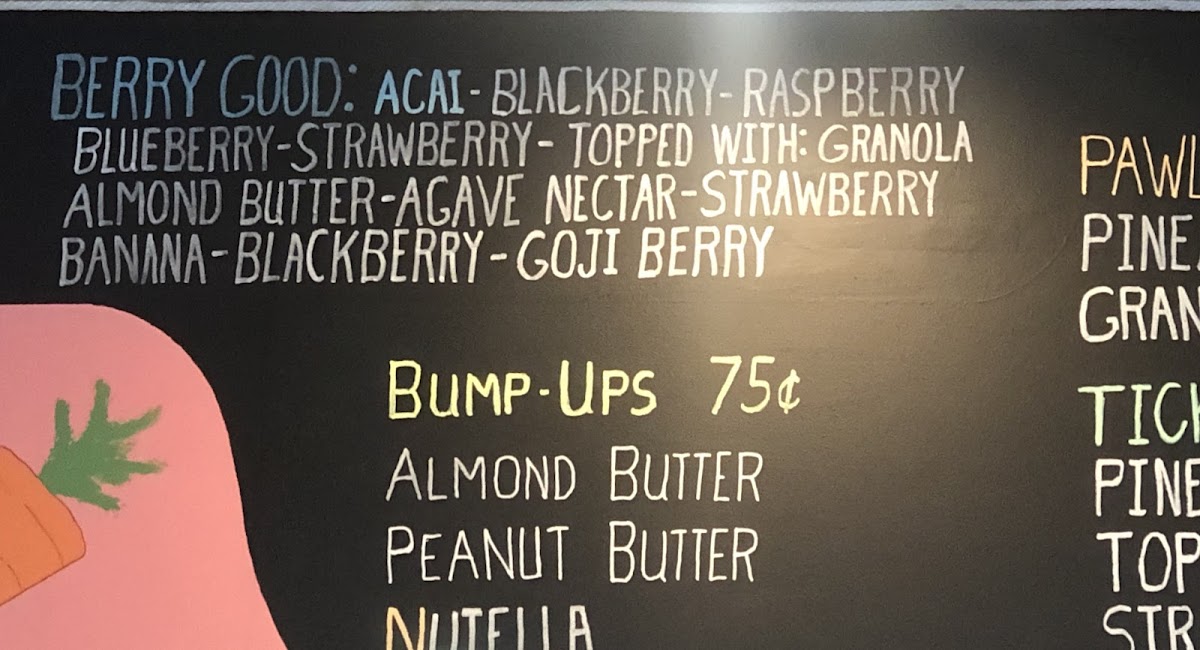 BERRY GOOD: ACAI - BLACKBERRY - RASPBERRY
BLUEBERRY - STRAWBERRY - TOPPED WITH: GRANOLA
ALMOND BUTTER - AGAVE NECTAR - STRAWBERRY
BANANA - BLACKBERRY - GOJI BERRY
BUMP-UPS 75¢
ALMOND BUTTER
PEANUT BUTTER
NUTELLA
PAWL
PINE
GRAN
TICK
PINE
TOP
STR